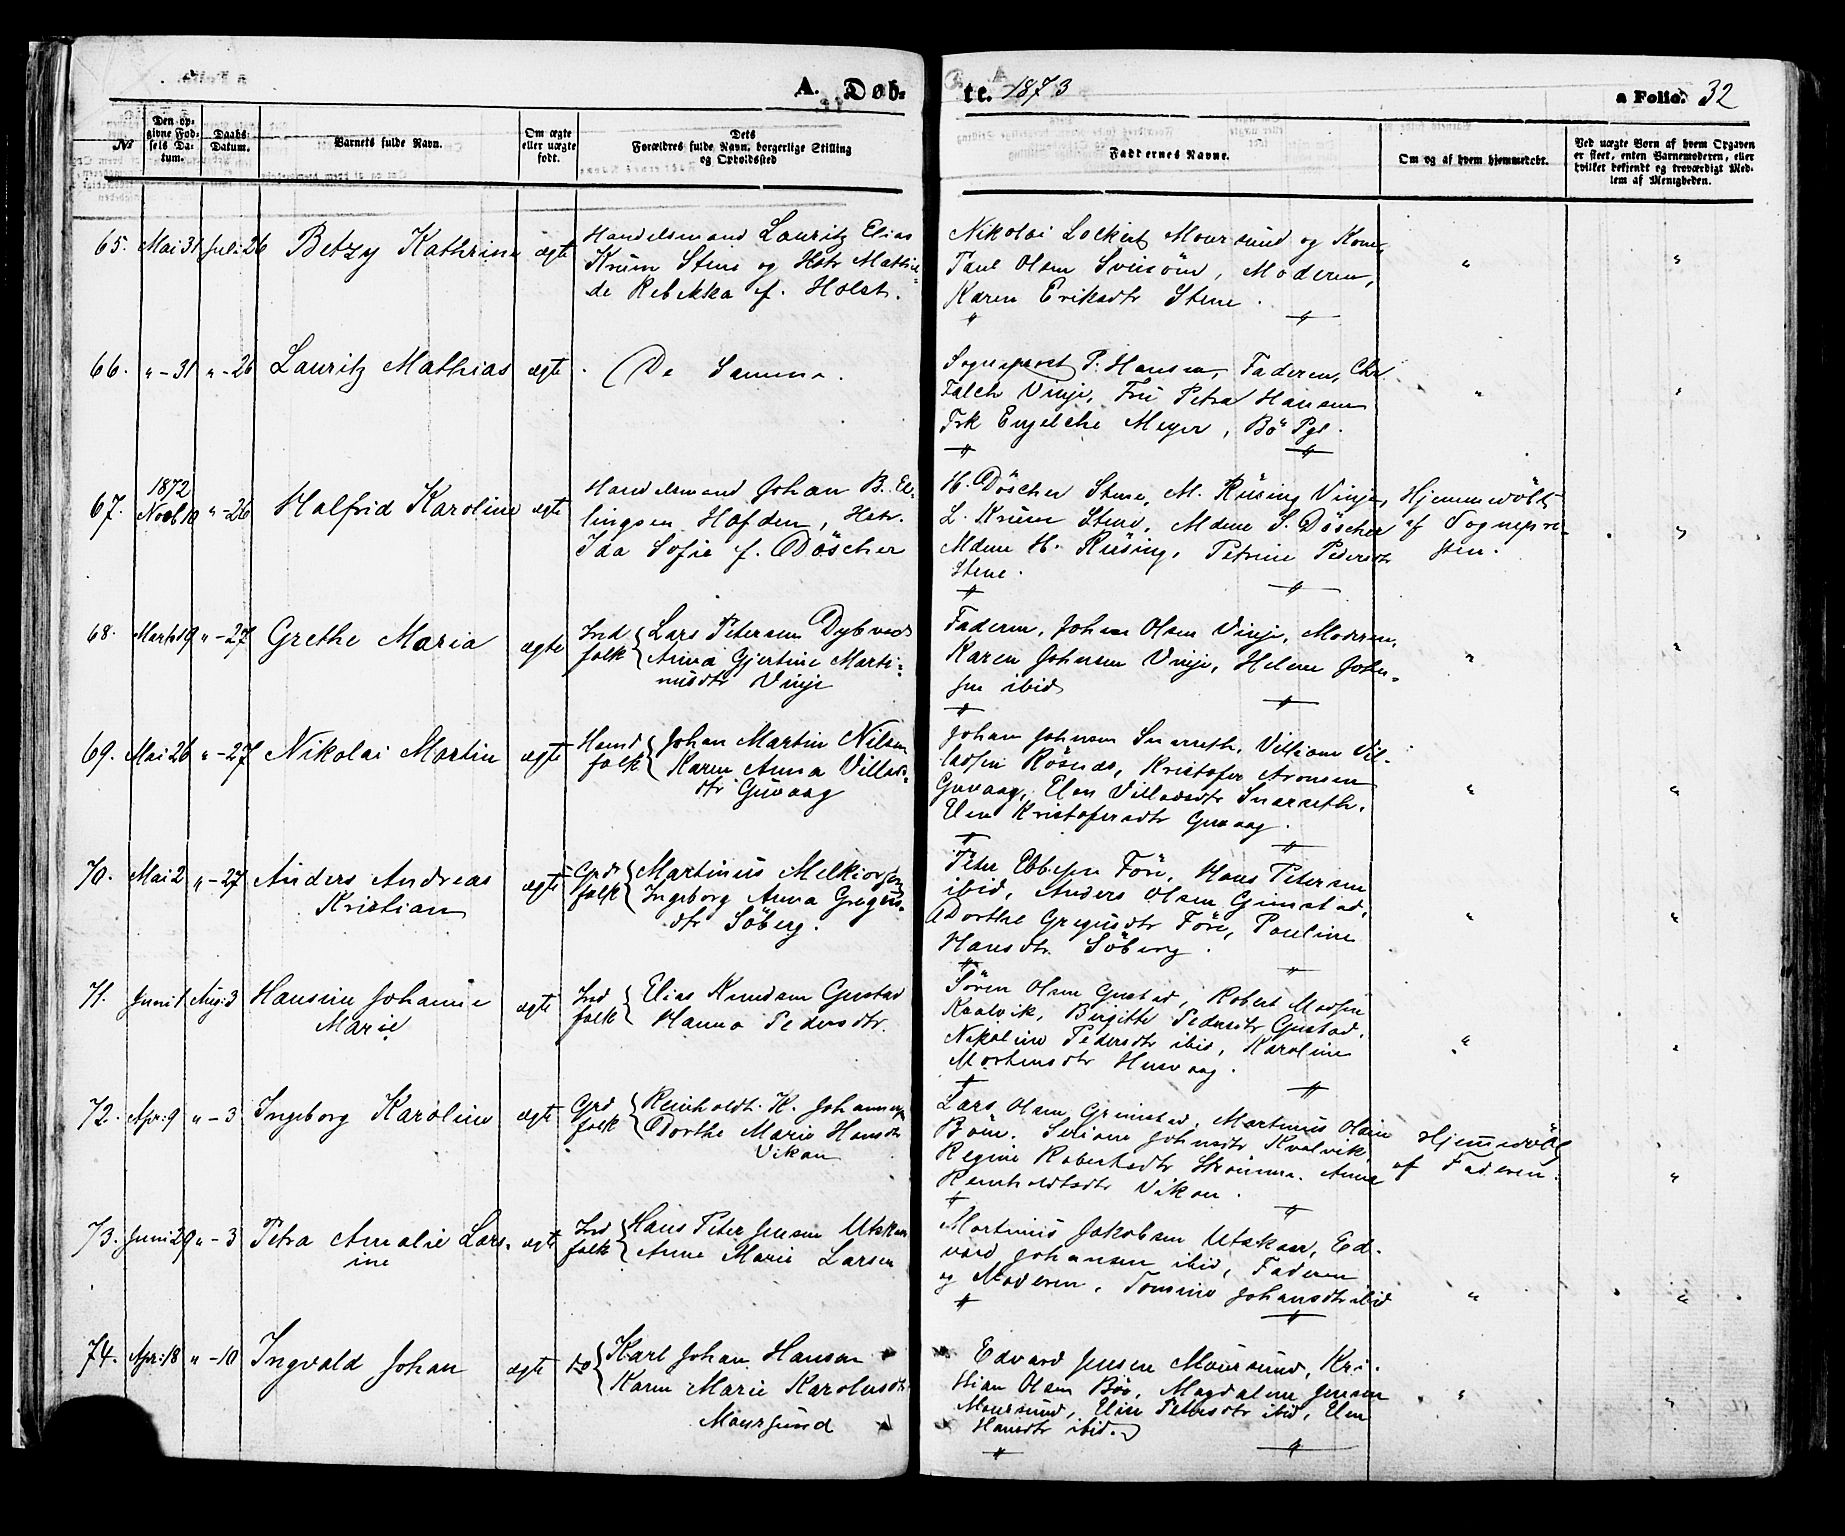 A. Døb-
te. 1873
a Folio. 32
No
Den op-
givne Fød-
sels Da-
tum.
Daabs
Datum.
Barnets fulde Navn.
Om ægte
eller uægte
født.
Dets
Forældres fulde Navn, borgerlige Stilling
og Opholdssted
Faddernes Navne.
Om og af hvem hjemmedøbt.
Ved uægte Børn af hvem Opgaven
er skeet, enten Barnemoderen, eller
hvilket bekjendt og troværdigt Med-
lem af Menigheden.
65. Mai 31 Juli 26 Betzy Kathrine ægte
Handelsmand Lauritz Elias
Krum Stene og Hstr Mathil-
de Rebekka f. Holst.
Nikolai Lockert Moursund og Kone,
Paul Olsen Svinøen, Moderen,
Karen Eriksdtr Stene.
66. " - 31 " - 26 Lauritz Mathias ægte
De Samme.
Sogneprest P. Hansen, Faderen, Chr.
Falch Vinje, Fru Petra Hansen
Frk Engelche Meyer, Bö Pgl.
67. 1872
Novb 10 " - 26 Halfrid Karoline ægte
Handelsmand Johan B. El-
lingsen Hofden, Hstr.
Ida Sofie f. Döscher
H. Döscher Stene, M. Rüsing Vinje,
L. Krum Stene, Mdme S. Döscher
Mdme H. Rüsing, Petrine Pedersdtr
Stene.
Hjemmedöbt
af Sognepre-
sten.
68. Marts 19 " - 27 Grethe Maria ægte
Ind
folk
Lars Petersen Dybvad
Anna Gjertine Marti-
nusdtr Vinje
Faderen, Johan Olsen Vinje, Moderen,
Karen Johnsen Vinje, Helene John-
sen ibid
69. Mai 26 " - 27 Nikolai Martin ægte
Hmd
folk
Johan Martin Nilsen
Karen Anna Villads-
dtr Guvaag
Johan Johnsen Snarseth, Villiam Vil-
ladsen Rösnes, Kristofer Aronsen
Guvaag, Elen Villadsdtr Snarseth.
Elen Kristofersdtr Guvaag.
70. Mai 2 " - 27 Anders Andreas
Kristian ægte
Grd
folk
Martinus Melkiorsen
Ingeborg Anna Gregus-
dtr Söberg.
Peter Ebbesen Före, Hans Petersen
ibid, Anders Olsen Grimstad,
Dorthe Gregusdtr Före, Pauline
Hansdtr Söberg.
71. Juni 1 Aug: 3 Hansine Johanne
Marie ægte
Ind
folk
Elias Knudsen Gustad
Hanna Pedersdtr.
Sören Olsen Gustad, Robert Madsen
Kvalvik, Birgitte Pedersdtr Gustad,
Nikoline Pedersdtr ibid, Karoline
Mortensdtr Husvaag.
72. Apr: 9 " - 3 Ingeborg Karoline ægte
Grd
folk
Reinholdt K. Johannesen
Dorthe Marie Hansdtr
Vikan
Lars Olsen Grimstad, Martinus Olsen
Böen. Seriane Johnsdtr Kvalvik.
Regine Robertsdtr Anna
Reinholdtsdtr Vikan.
Hjemmedöbt
af Faderen.
73. Juni 29 " - 3 Petra Amalie Lars-
ine ægte
Ind
folk
Hans Peter Jensen Utskar
Anne Marie Larsen
Martinus Jakobsen Utskaar, Ed-
vard Johansen ibid, Faderen
og Moderen, Tomine Johansdtr ibid
74. Apr: 18 " - 10 Ingvald Johan ægte
do
Karl Johan Hansen
Karen Marie Karolusdtr
Moursund
Edvard Jensen Moursund, Kri-
stian Olsen Böe, Magdalene Jensen
Moursund, Elise Petersdtr ibid, Elen
Hansdtr ibid.